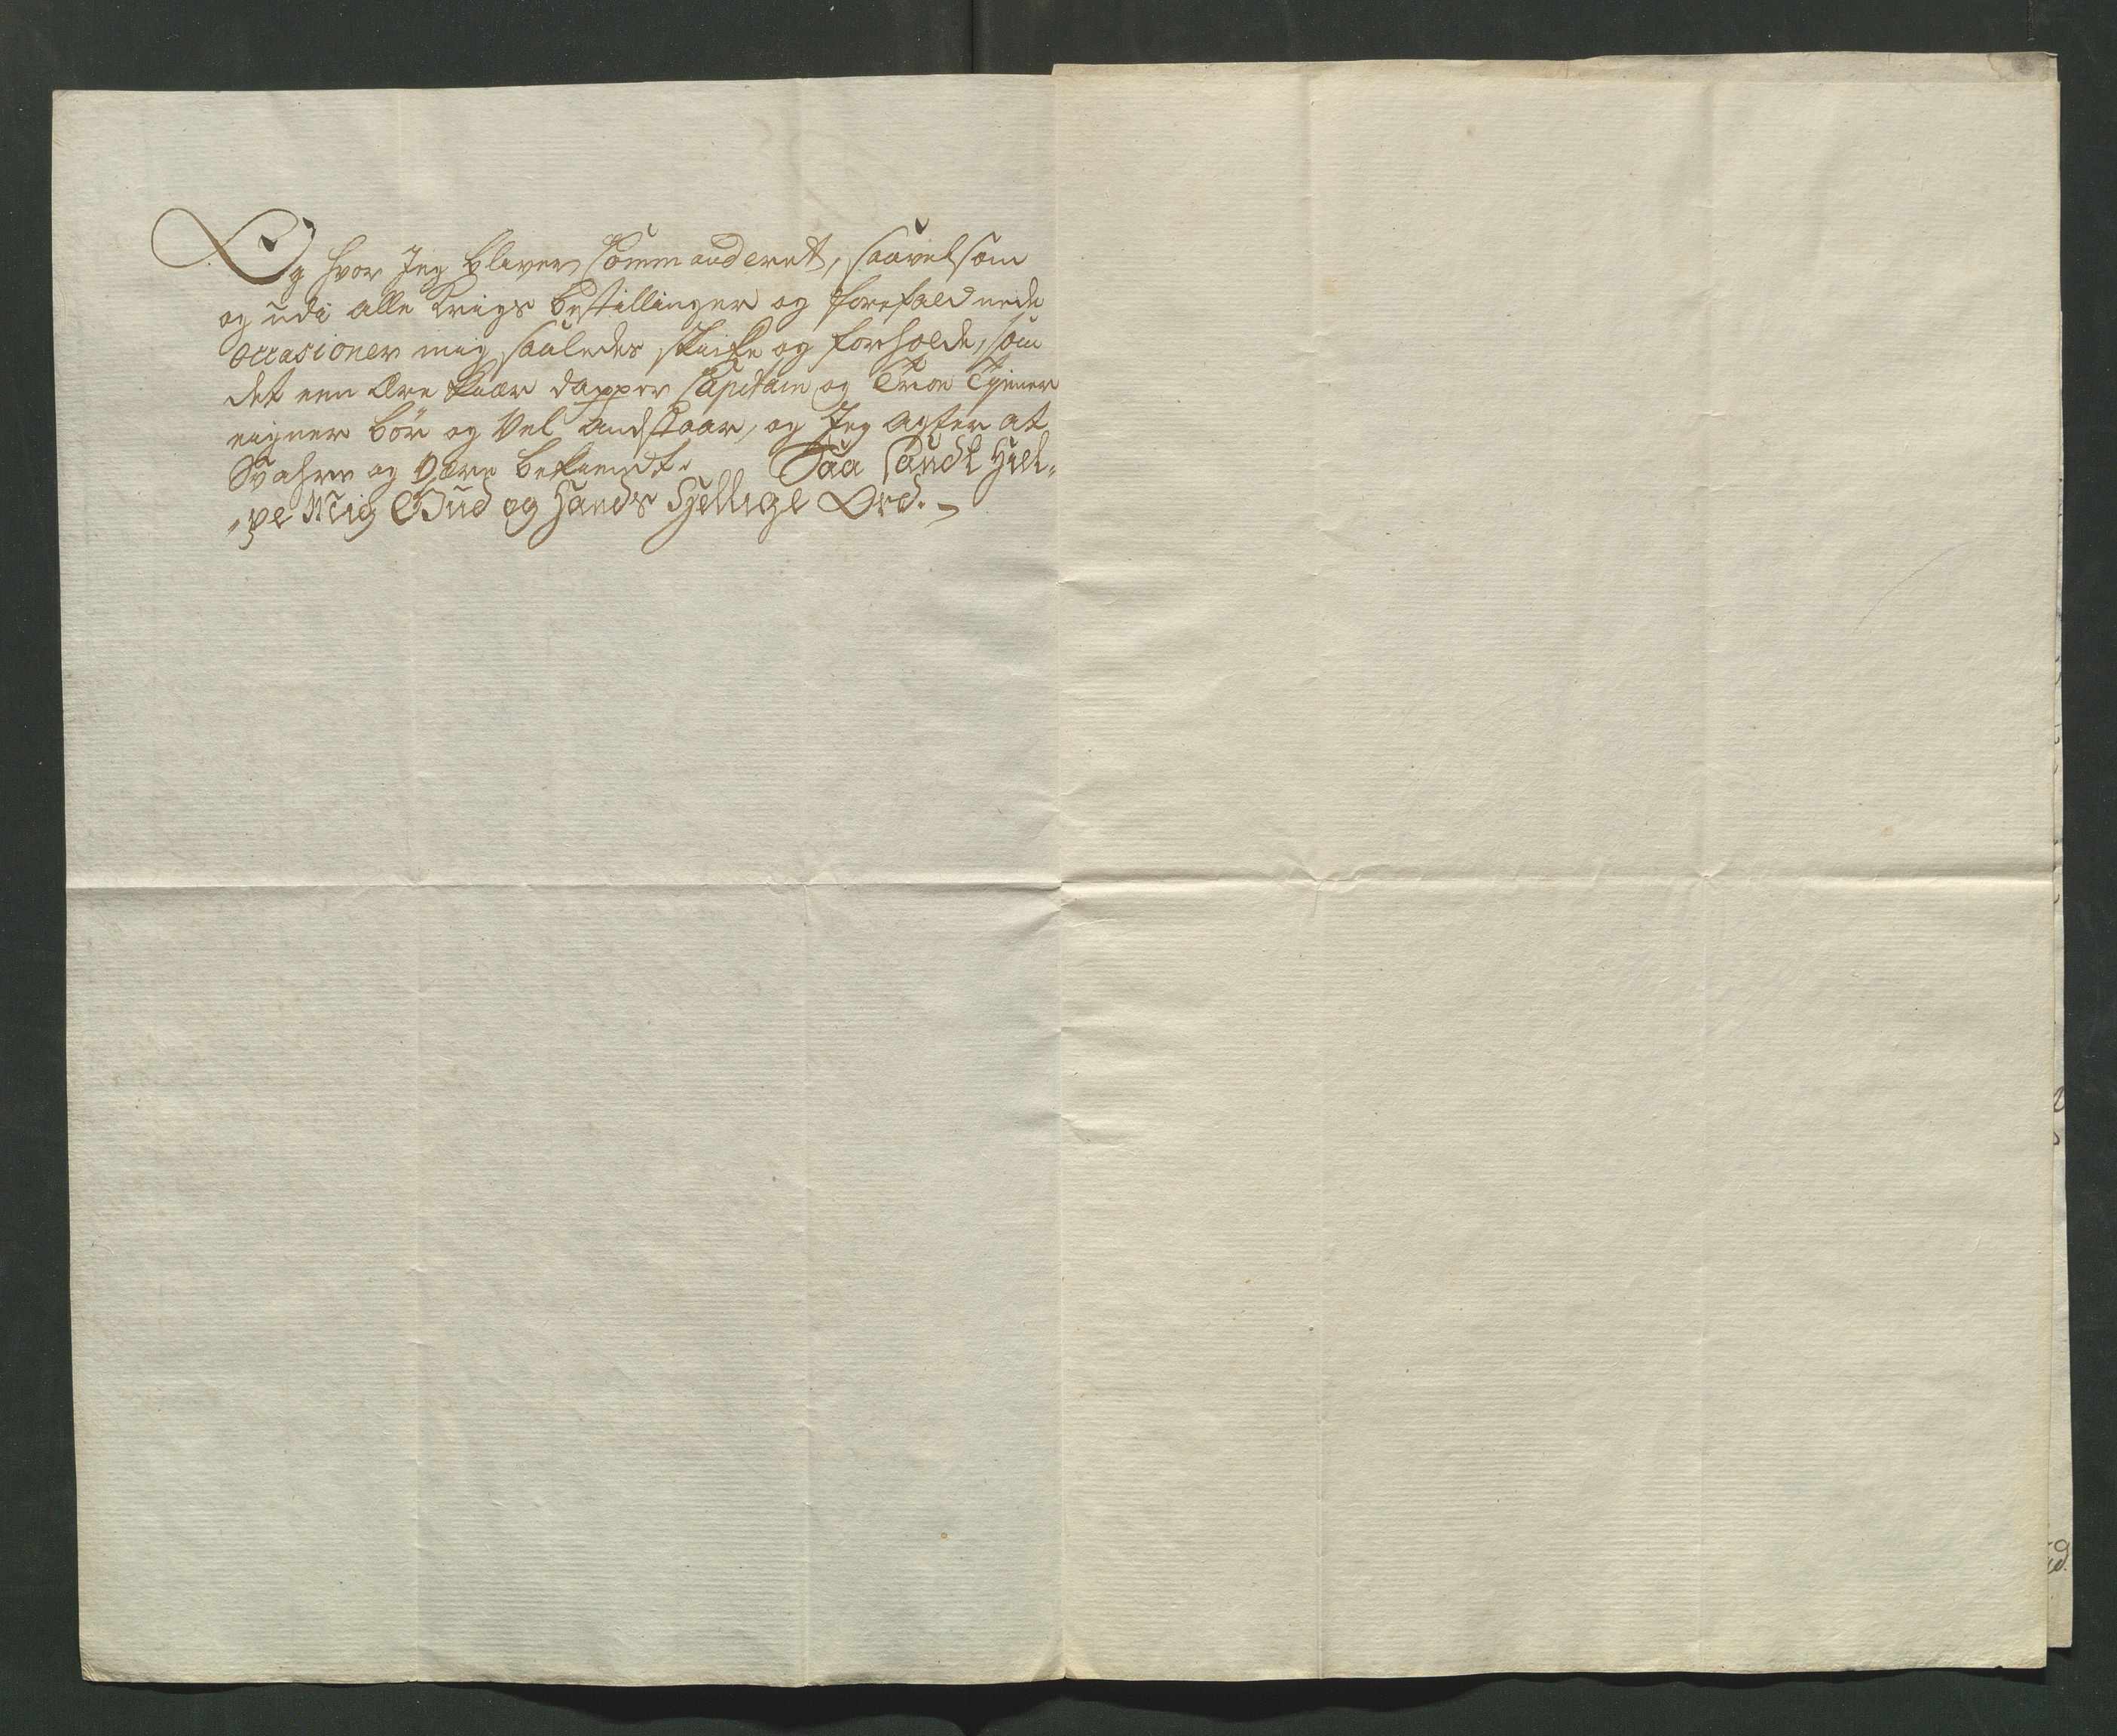 Og hvor Jeg bliver Commanderet, saavelsom
og udi alle Krigs bestillinger og forefaldnede
occasioner mig saaledes skicke og forholde, som
det een Ære kiær dapper Capitain og Troe Tjener
eigner bör og Vel anstaar, og Jeg agter at
Svahre og Være bekiendt. Saa Sandt Hiel-
-pe Mig Gud og Hands Hellige Ord.